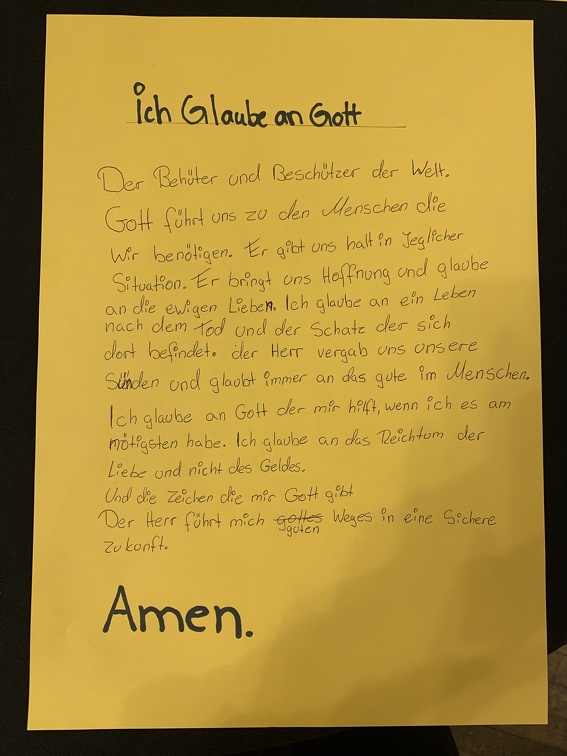 ich Glaube an Gott
Der Behüter und Beschützer der Welt.
Gott führt uns zu den Menschen die
Wir benötigen. Er gibt uns halt in Jeglicher
Situation. Er bringt uns Hoffnung und glaube
an die ewigen Lieben. Ich glaube an ein Leben
nach dem Tod und der Schatz der sich
dort befindet. der Herr vergab uns unsere
Sünden und glaubt immer an das gute im Menschen.
Ich glaube an Gott der mir hilft, wenn ich es am
nötigsten habe. Ich glaube an das Reichtum der
Liebe und nicht des Geldes.
Und die Zeichen die mir Gott gibt
Der Herr führt mich gottes Weges in eine Sichere
guten
Zukunft.
Amen.